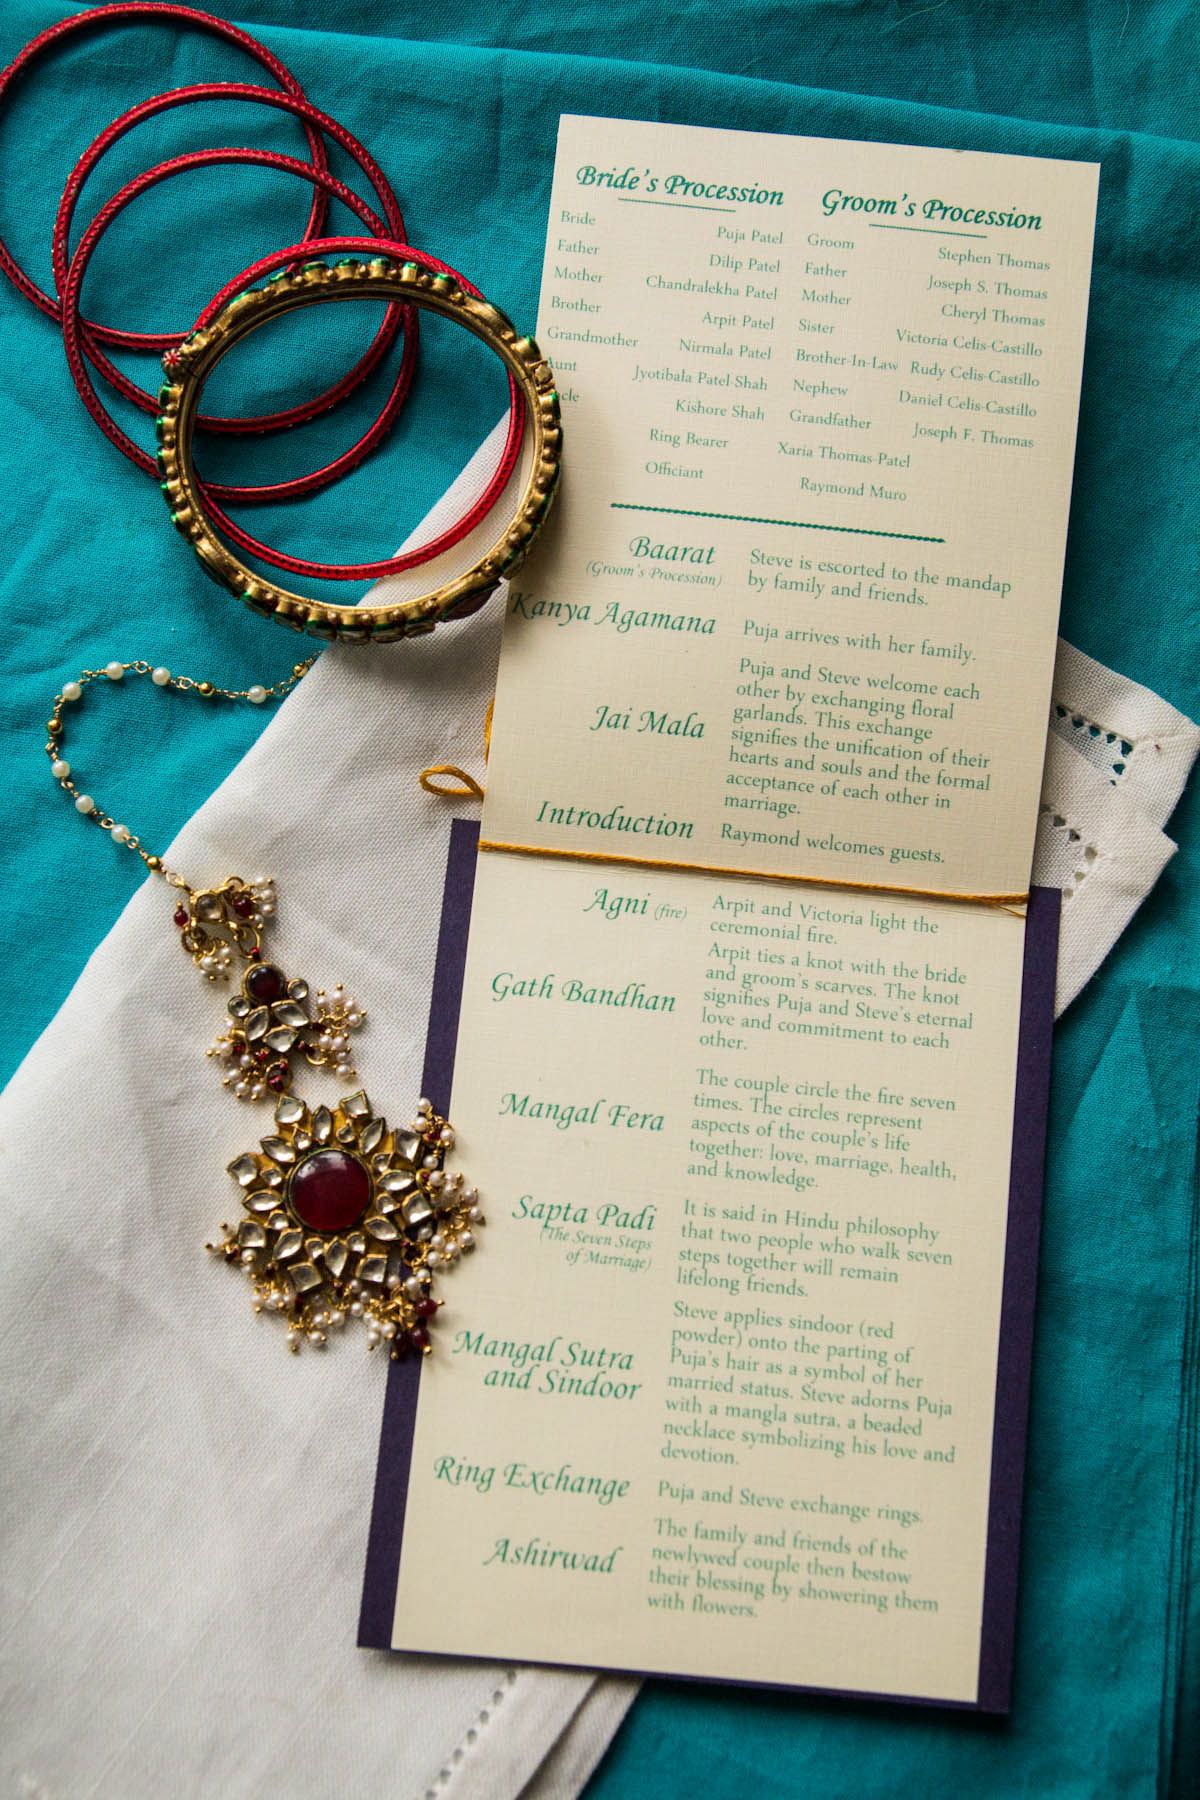 Bride's Procession
Bride Puja Patel
Father Dilip Patel
Mother Chandralekha Patel
Brother Arpit Patel
Grandmother Nirmala Patel
Aunt Jyotibala Patel-Shah
Kishore Shah
Groom's Procession
Groom Stephen Thomas
Father Joseph S. Thomas
Mother Cheryl Thomas
Sister Victoria Celis-Castillo
Brother-In-Law Rudy Celis-Castillo
Nephew Daniel Celis-Castillo
Grandfather Joseph F. Thomas
Ring Bearer Xaria Thomas-Patel
Officiant Raymond Muro
Baarat
(Groom's Procession)
Steve is escorted to the mandap
by family and friends.
Kanya Agamana
Puja arrives with her family.
Jai Mala
Puja and Steve welcome each
other by exchanging floral
garlands. This exchange
signifies the unification of their
hearts and souls and the formal
acceptance of each other in
marriage.
Introduction
Raymond welcomes guests.
Agni (fire)
Arpit and Victoria light the
ceremonial fire.
Gath Bandhan
Arpit ties a knot with the bride
and groom's scarves. The knot
signifies Puja and Steve's eternal
love and commitment to each
other.
Mangal Fera
The couple circle the fire seven
times. The circles represent
aspects of the couple's life
together: love, marriage, health,
and knowledge.
Sapta Padi
(The Seven Steps
of Marriage)
It is said in Hindu philosophy
that two people who walk seven
steps together will remain
lifelong friends.
Mangal Sutra
and Sindoor
Steve applies sindoor (red
powder) onto the parting of
Puja's hair as a symbol of her
married status. Steve adorns Puja
with a mangla sutra, a beaded
necklace symbolizing his love and
devotion.
Ring Exchange
Puja and Steve exchange rings.
Ashirwad
The family and friends of the
newlywed couple then bestow
their blessing by showering them
with flowers.